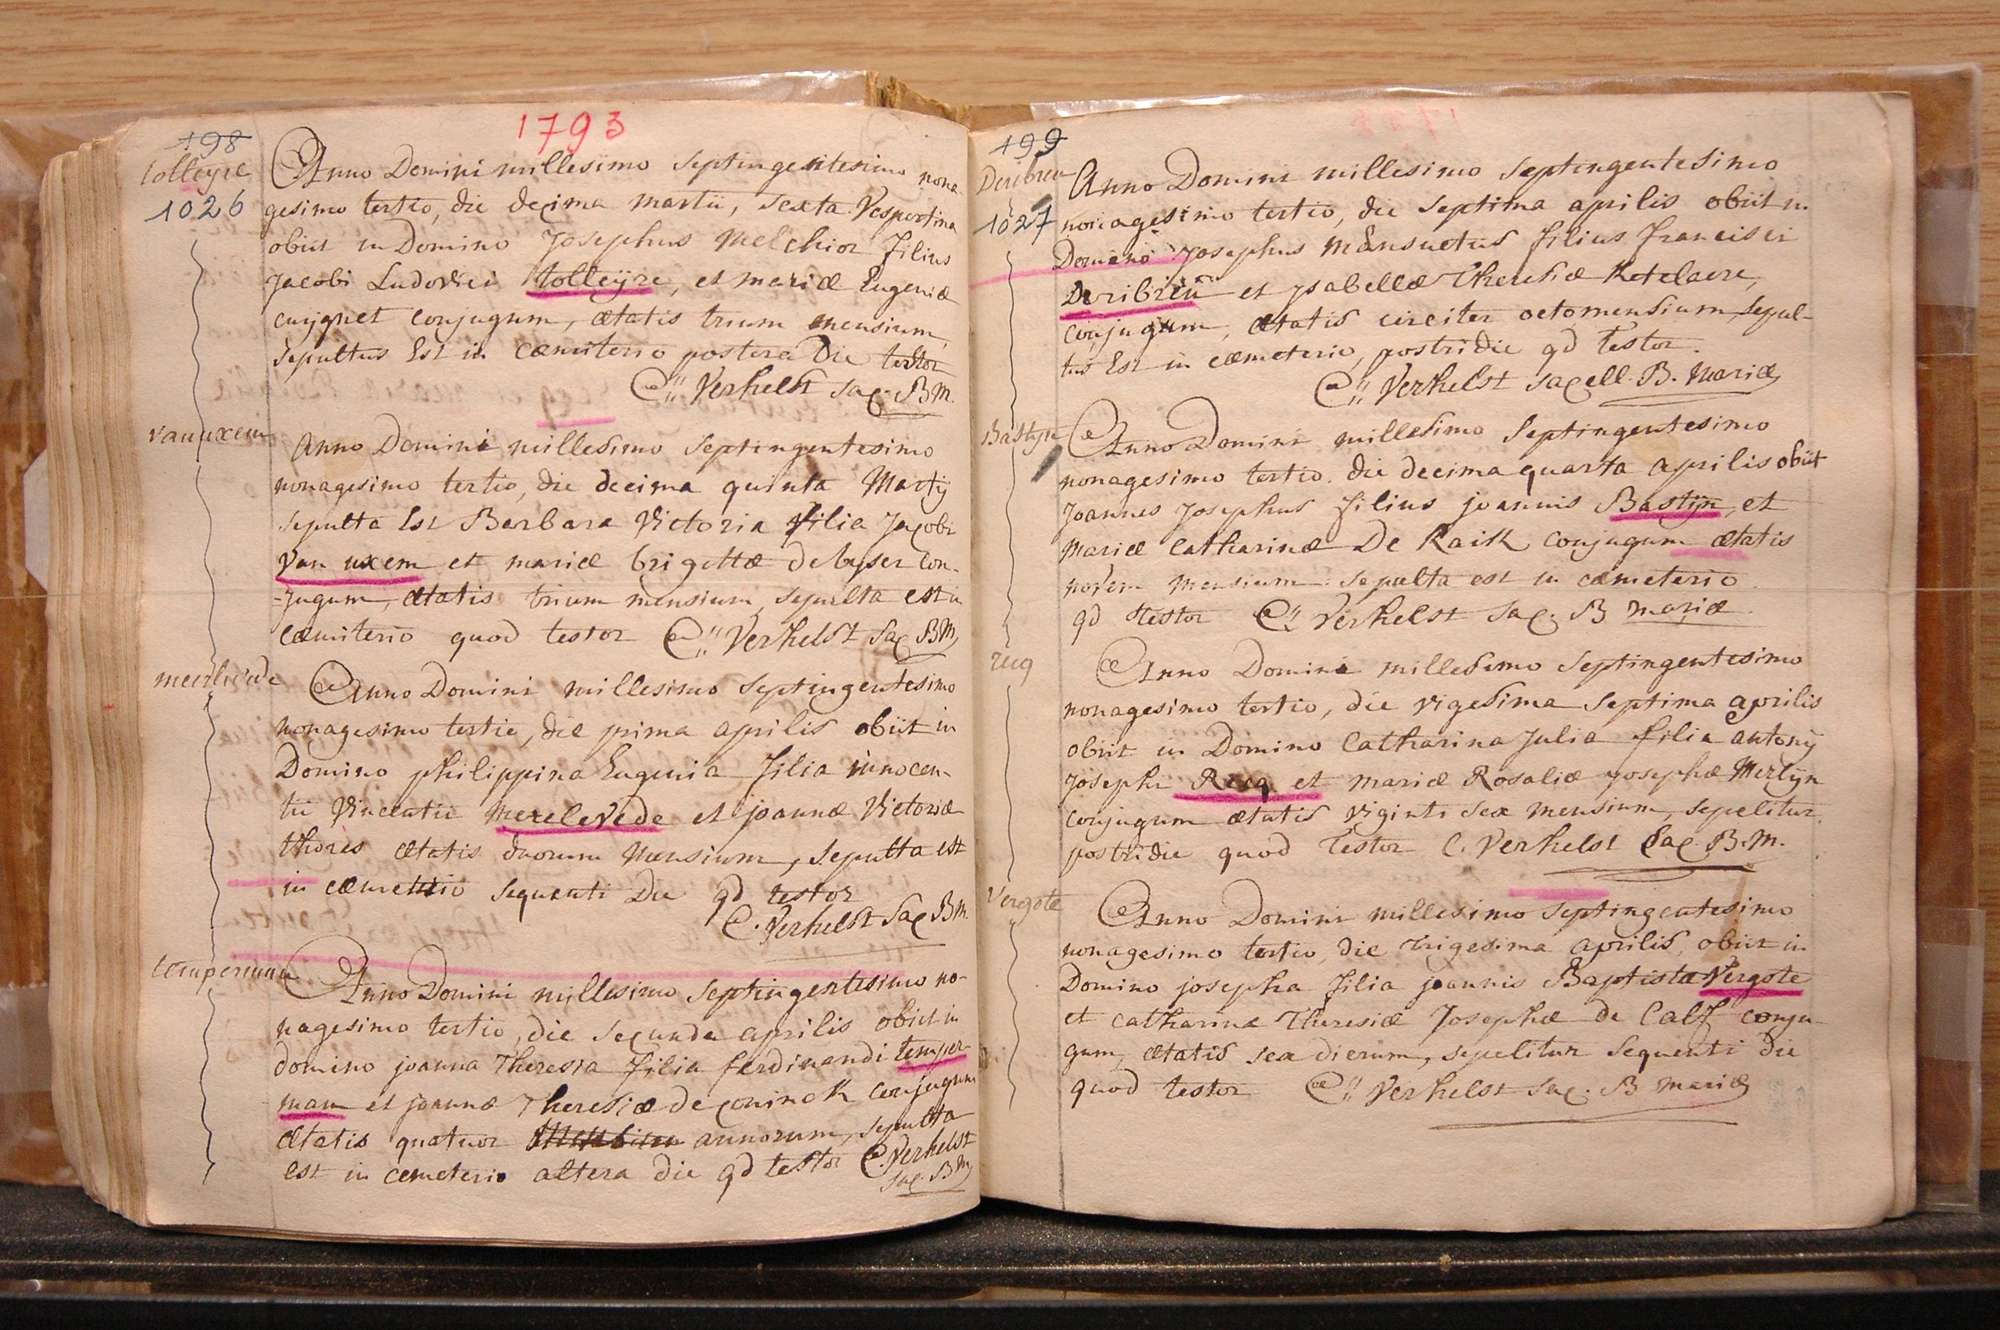 1793
198
tolleyre
1026
Anno Domini millesimo septingentesimo nona
gesimo tertio, die decima martii, sexta Vespertina
obiit in Domino Josephus Melchior filius
Jacobi Ludovici tolleyre, et mariæ Eugeniæ
cuijgnet conjugum, ætatis trium mensium,
sepultus Est in cæmiterio postera Die testor
C: Verhelst Sac: B M.
van uxem
Anno Domini millesimo septingentesimo
nonagesimo tertio, die decima quinta Martij
sepulta Est Barbara Victoria filia Jacobi
Van uxem et mariæ brigittæ debyser Con-
-jugum, ætatis trium mensium, sepulta est in
cæmiterio quod testor C: Verhelst Sac B M
merlevede
Anno Domini millesimo septingentesimo
nonagesimo tertio, die prima aprilis obiit in
Domino philippina Eugenia filia innocen-
tii Vincentii Merelevede et joannæ Victoriæ
thores ætatis duorum Mensium, sepulta est
in cæmeterio sequenti Die qd testor
C. Verhelst Sac B M.
temperman
Anno Domini millesimo septingentesimo no-
nagesimo tertio, die secunda aprilis obiit in
domino joanna Theresia filia ferdinandi temper-
mam et joannæ Theresiæ de coninck conjugum
ætatis quatuor annorum, sepulta
est in cemeterio altera die qd testor C. Verhelst
Sac. B M
199
Deribreu
1027
Anno Domini millesimo septingentesimo
nonagesimo tertio, die septima aprilis obiit in
Domino Josephus Mansuetus filius francisci
Deribreu et ysabellæ Theresiæ Ketelaere,
conjugum, ætatis circiter octomensium, sepul-
tus Est in cæmeterio, postridie qd testor.
C: Verhelst Sacell. B. Mariæ
Bastijn
Anno Domini millesimo septingentesimo
nonagesimo tertio. die decima quarta aprilis obiit
Joannes Josephus filius joannis Bastijn, et
Mariæ Catharinæ De Raik conjugum ætatis
novem mensium. sepulta est in cæmeterio
qd testor C: Verhelst Sac. B mariæ.
recq
Anno Domini millesimo septingentesimo
nonagesimo tertio, die vigesima septima aprilis
obiit in Domino Catharina Julia filia antonij
Josephi Recq et mariæ Rosaliæ josephæ Merlijn
conjugum ætatis viginti sex mensium, sepelitur
postridie quod testor C. Verhelst Sac. B. M.
Vergote
Anno Domini millesimo septingentesimo
nonagesimo tertio, die trigesima aprilis, obiit in
Domino josepha filia joannis Baptistæ Vergote
et catharinæ Theresiæ Josephæ de Calf conju-
gum, ætatis sex dierum, sepelitur sequenti die
quod testor C: Verhelst Sac. B mariæ